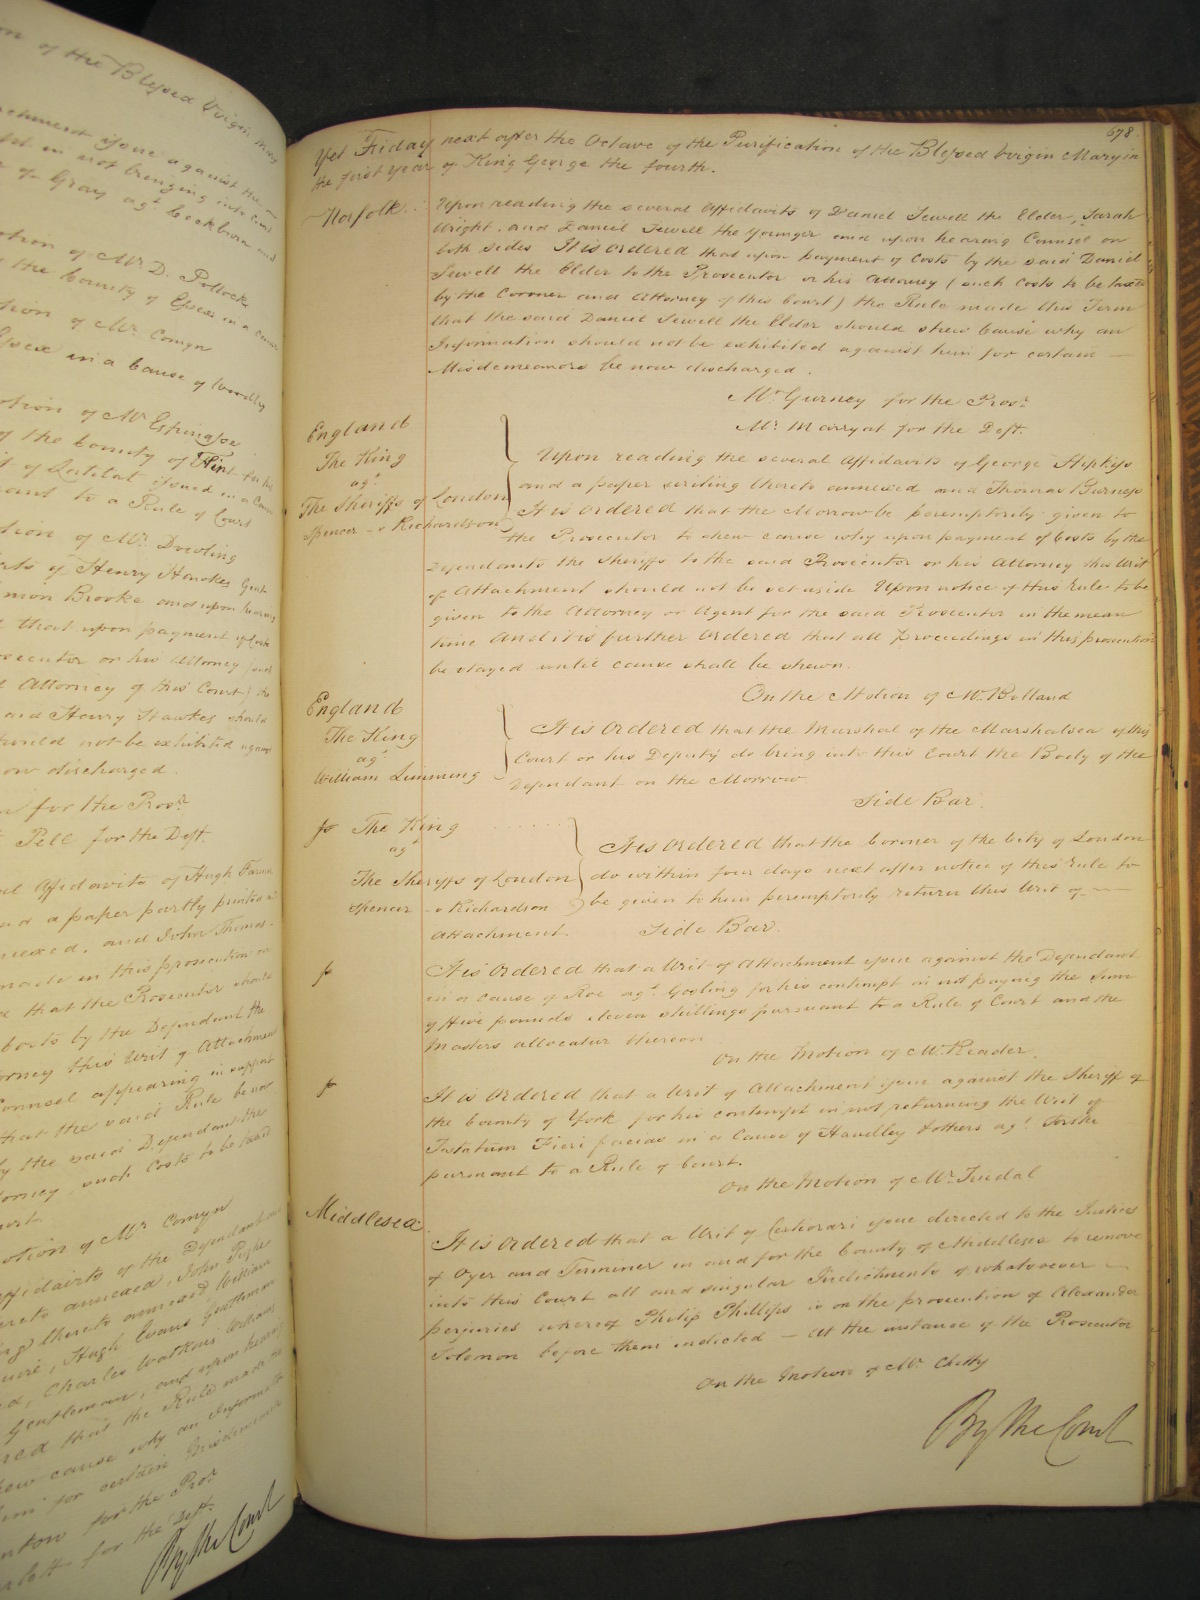 of the Blessed Virgin Mary
issue against the
in not bringing into Court
of Gray agt Cockburn and
otion of Mr D. Pollock
the County of Essex in a Cause
tion of Mr Comyn
Essex in a Cause of
otion of Mr Espinasse
of the County of
of Latitat issued in a Cause
pursuant to a Rule of Court
tion of Mr Dowling
of Henry Hawkes Gent
Brooke and upon hearing
that upon payment of Costs
Prosecutor or his Attorney such
Attorney of this Court) the
and Henry Hawkes should
should not be exhibited against
now discharged.
for the Prosr
Pell for the Deft.
Affidavits of Hugh
and a paper partly printed
annexed, and John Thomas
made in this prosecution on
that the Prosecutor should
Costs by the Dependant the
Attorney this Writ of Attachment
Counsel appearing in support
that the said Rule be now
by the said Dependant the
Attorney such Costs to be taxed
Court.
otion of Mr Comyn
Affidavits of the Dependant
hereto annexed, John
thereto annexed, William
Hugh Evans Gentleman
Charles Watkins William
Gentleman, and upon hearing
ordered that the Rule made
shew cause why an Information
him for certain Misdemeanors
for the Prosr
for the Deft.
By the Court
678.
Yet Friday next after the Octave of the Purification of the Blessed Virgin Mary in
the first Year of King George the fourth.
Norfolk. Upon reading the several Affidavits of Daniel Sewell the Elder, Sarah
Wright, and Daniel Sewell the Younger and upon hearing Counsel on
both sides It is ordered that upon payment of Costs by the said Daniel
Sewell the Elder to the Prosecutor or his Attorney (such Costs to be taxed
by the Coroner and Attorney of this Court) the Rule made this Term
that the said Daniel Sewell the Elder should shew Cause why an
Information should not be exhibited against him for certain
Misdemeanors be now discharged.
Mr Gurney for the Prosr
Mr Marryat for the Deft.
England
The King
agt
The Sheriffs of London
Spencer v Richardson
Upon reading the several Affidavits of George Hipkiss
and a paper writing thereto annexed and Thomas Burness
It is ordered that the Morrow be peremptorily given to
the Prosecutor to shew cause why upon payment of Costs by the
Dependants the Sheriffs to the said Prosecutor or his Attorney this Writ
of Attachment should not be set aside Upon notice of this Rule to be
given to the Attorney or Agent for the said Prosecutor in the mean
time And it is further ordered that all proceedings in this prosecution
be stayed until cause shall be shewn.
On the Motion of Mr Bolland
England
The King
agt
William Limming
It is Ordered that the Marshal of the Marshalsea of this
Court or his Deputy do bring into this Court the Body of the
Dependant on the Morrow.
Side Bar.
The King
agt
The Sheriffs of London
Spencer v Richardson
It is Ordered that the Coroner of the City of London
do within four days next after notice of this Rule to
be given to him peremptorily return this Writ of
Attachment. Side Bar.
It is Ordered that a Writ of Attachment issue against the Dependant
in a cause of Roe agt Gosling for his contempt in not paying the Sum
of Five pounds eleven shillings pursuant to a Rule of Court and the
Masters allocatur thereon
On the Motion of Mr Reader.
It is Ordered that a Writ of Attachment issue against the Sheriff of
the County of York for his contempt in not returning the Writ of
Testatum Fieri facias in a Cause of Handley & others agt
pursuant to a Rule of Court.
On the Motion of Mr Tindal
Middlesex
It is ordered that a Writ of Certiorari issue directed to the Justices
of Oyer and Terminer in and for the County of Middlesex to remove
into this Court all and singular Indictments of whatsoever
perjuries whereof Philip Phillips is on the prosecution of Alexander
Solomon before them indicted – At the instance of the Prosecutor
On the Motion of Mr Chitty
By the Court